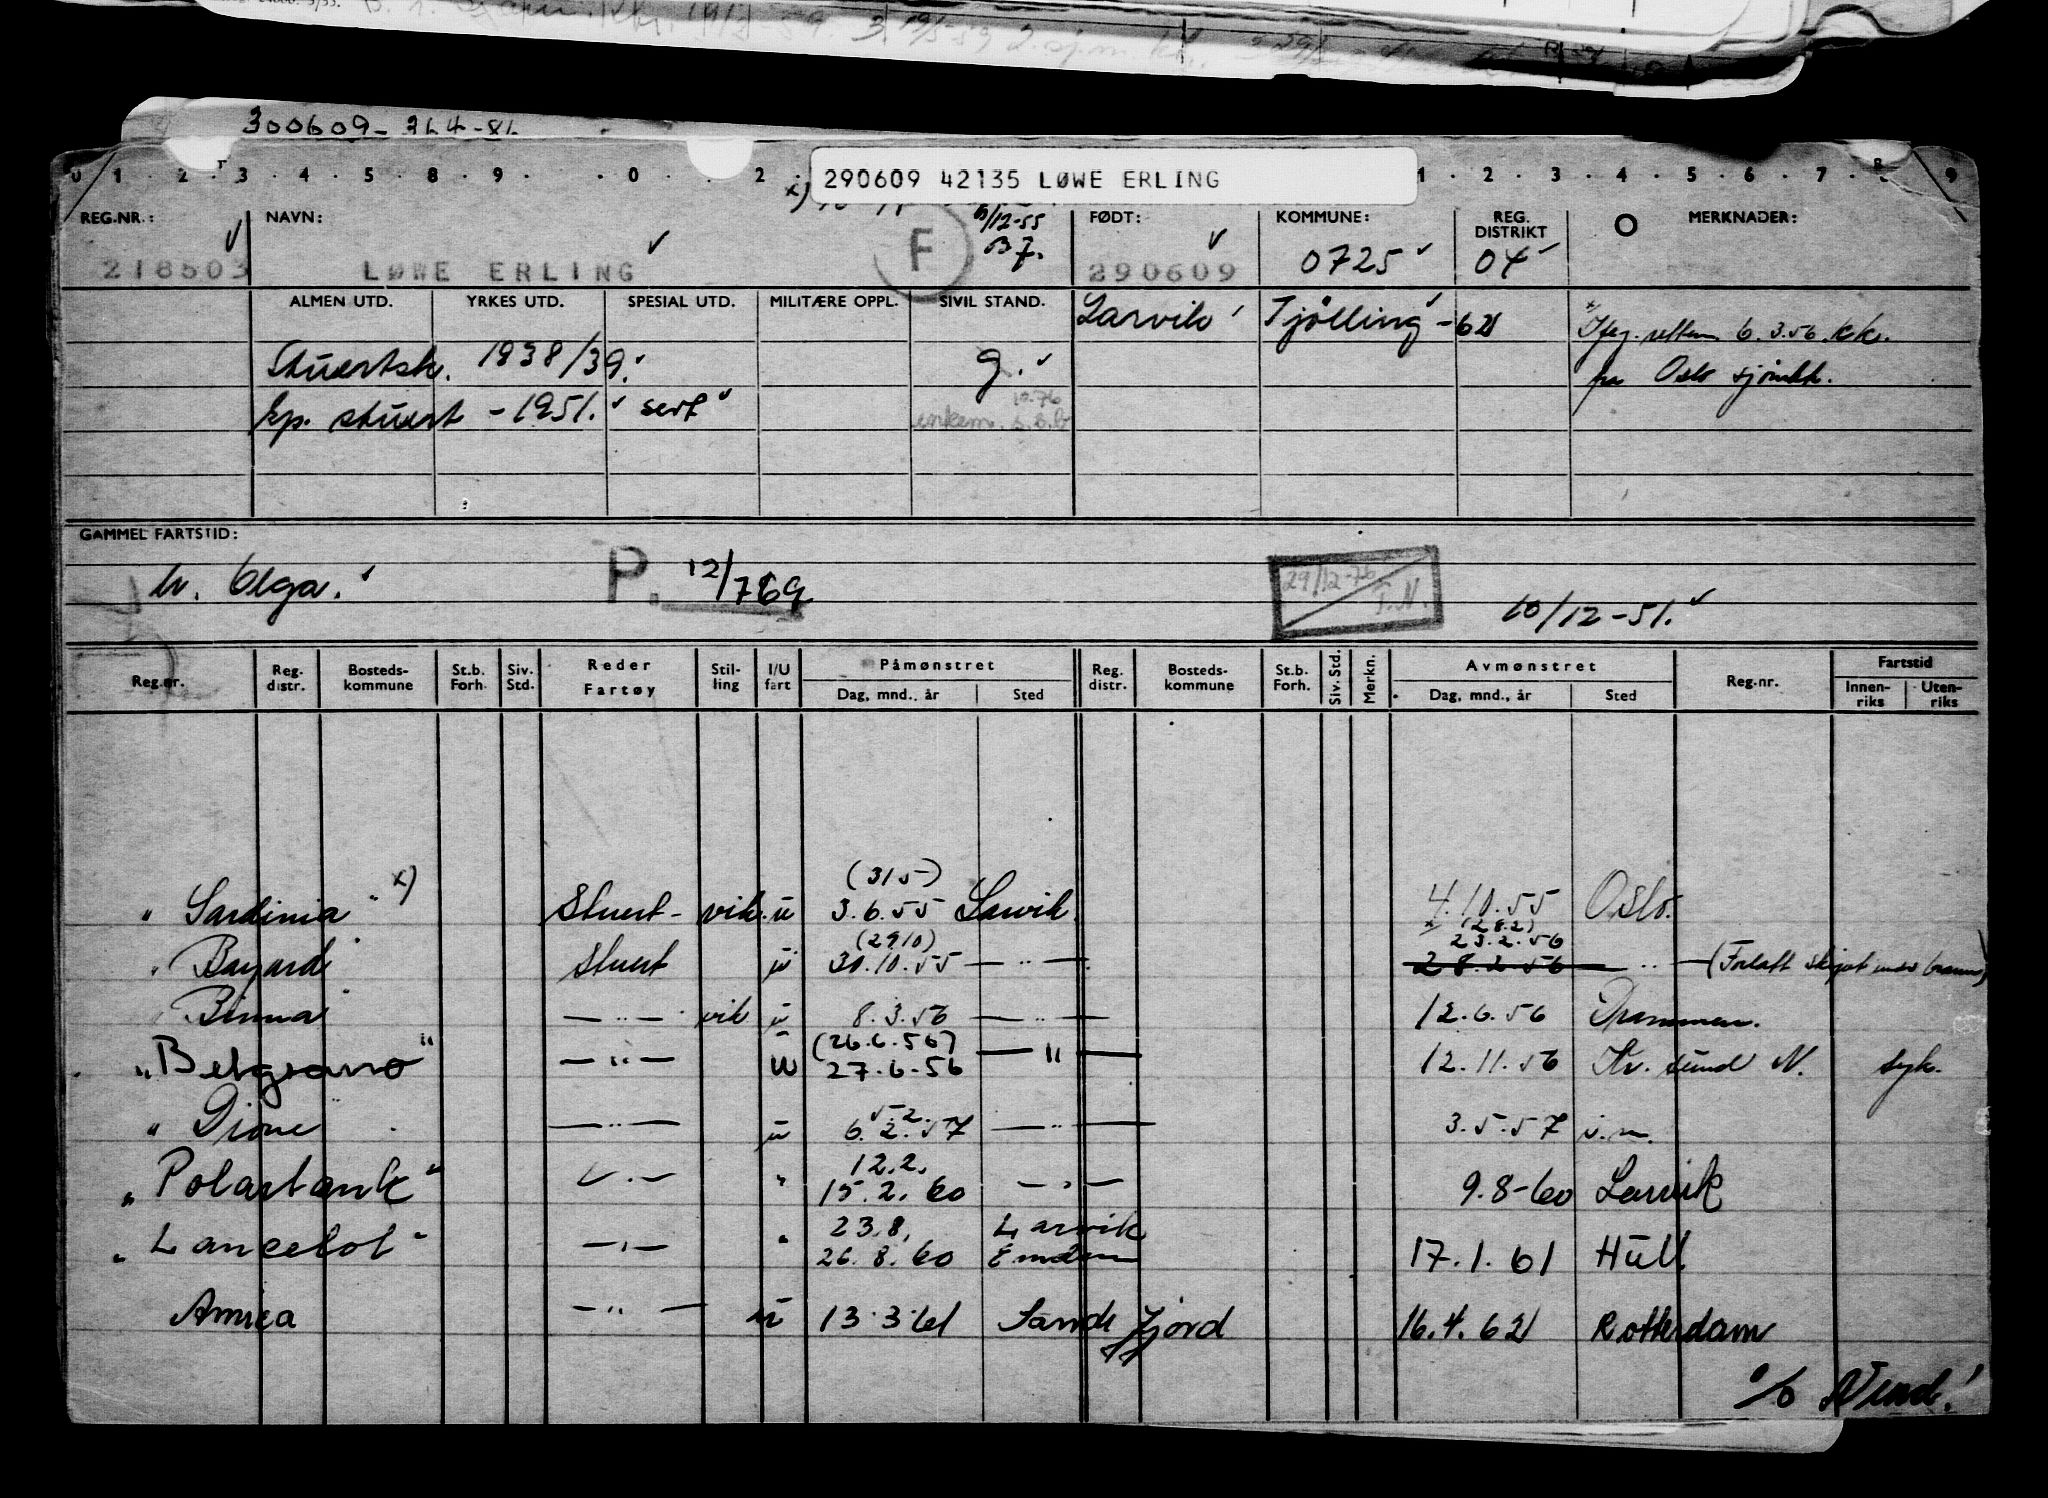 300609-
0 1 2 3 4 5 8 9 0 2 1 2 3 4 5 6 7 8 9
290609 42135 LØWE ERLING
REG.NR.: NAVN: FØDT: KOMMUNE: REG. DISTRIKT MERKNADER:
/12-55
F
218503 LØWE ERLING 290609 0725 04
ALMEN UTD. YRKES UTD. SPESIAL UTD. MILITÆRE OPPL. SIVIL STAND. Larvik Tjølling -62
6.3.56. kk.
Stuertsk. 1938/39. g. fra Oslo sjømkk.
kp. stuert - 1951. sert
enkem. 10.76
GAMMEL FARTSTID:
h. Olga. P. 12/769 29/12-76 T.N. 10/12-51.
Reg.nr. Reg. distr. Bosteds- kommune St.b. Forh. Siv. Std. Reder Fartøy Stil- ling I/U fart Påmønstret Dag, mnd., år Sted Reg. distr. Bosteds- kommune St.b. Forh. Siv. Std. Merkn. Avmønstret Dag, mnd., år Sted Reg-nr. Fartstid Innen- riks Uten- riks
(315)
" Sardinia " x) Stuert - vik. u 3.6.55 Larvik 4.10.55 Oslo.
(2910) x (282) 23.2.56
" Bayard " Stuert u 30.10.55 — " — 28.2.56 — " — (Forlatt skipet
" Binna " — " — vik u 8.3.56 — " — 12.6.56 Drammen.
(26.6.56)
" Belgrano " — " — u 27.6.56 — " — 12.11.56 Kr. sund N. syk.
5.2.
" Dione " — " — u 6.2.57 — " — 3.5.57
12.2.
" Polartank " — " — " 15.2.60 — " — 9.8-60 Larvik
23.8. Larvik
" Lancelot " — " — " 26.8.60 Emden 17.1.61 Hull
Amica — " — u 13.3.61 Sandefjord 16.4.62 Rotterdam
Vend!